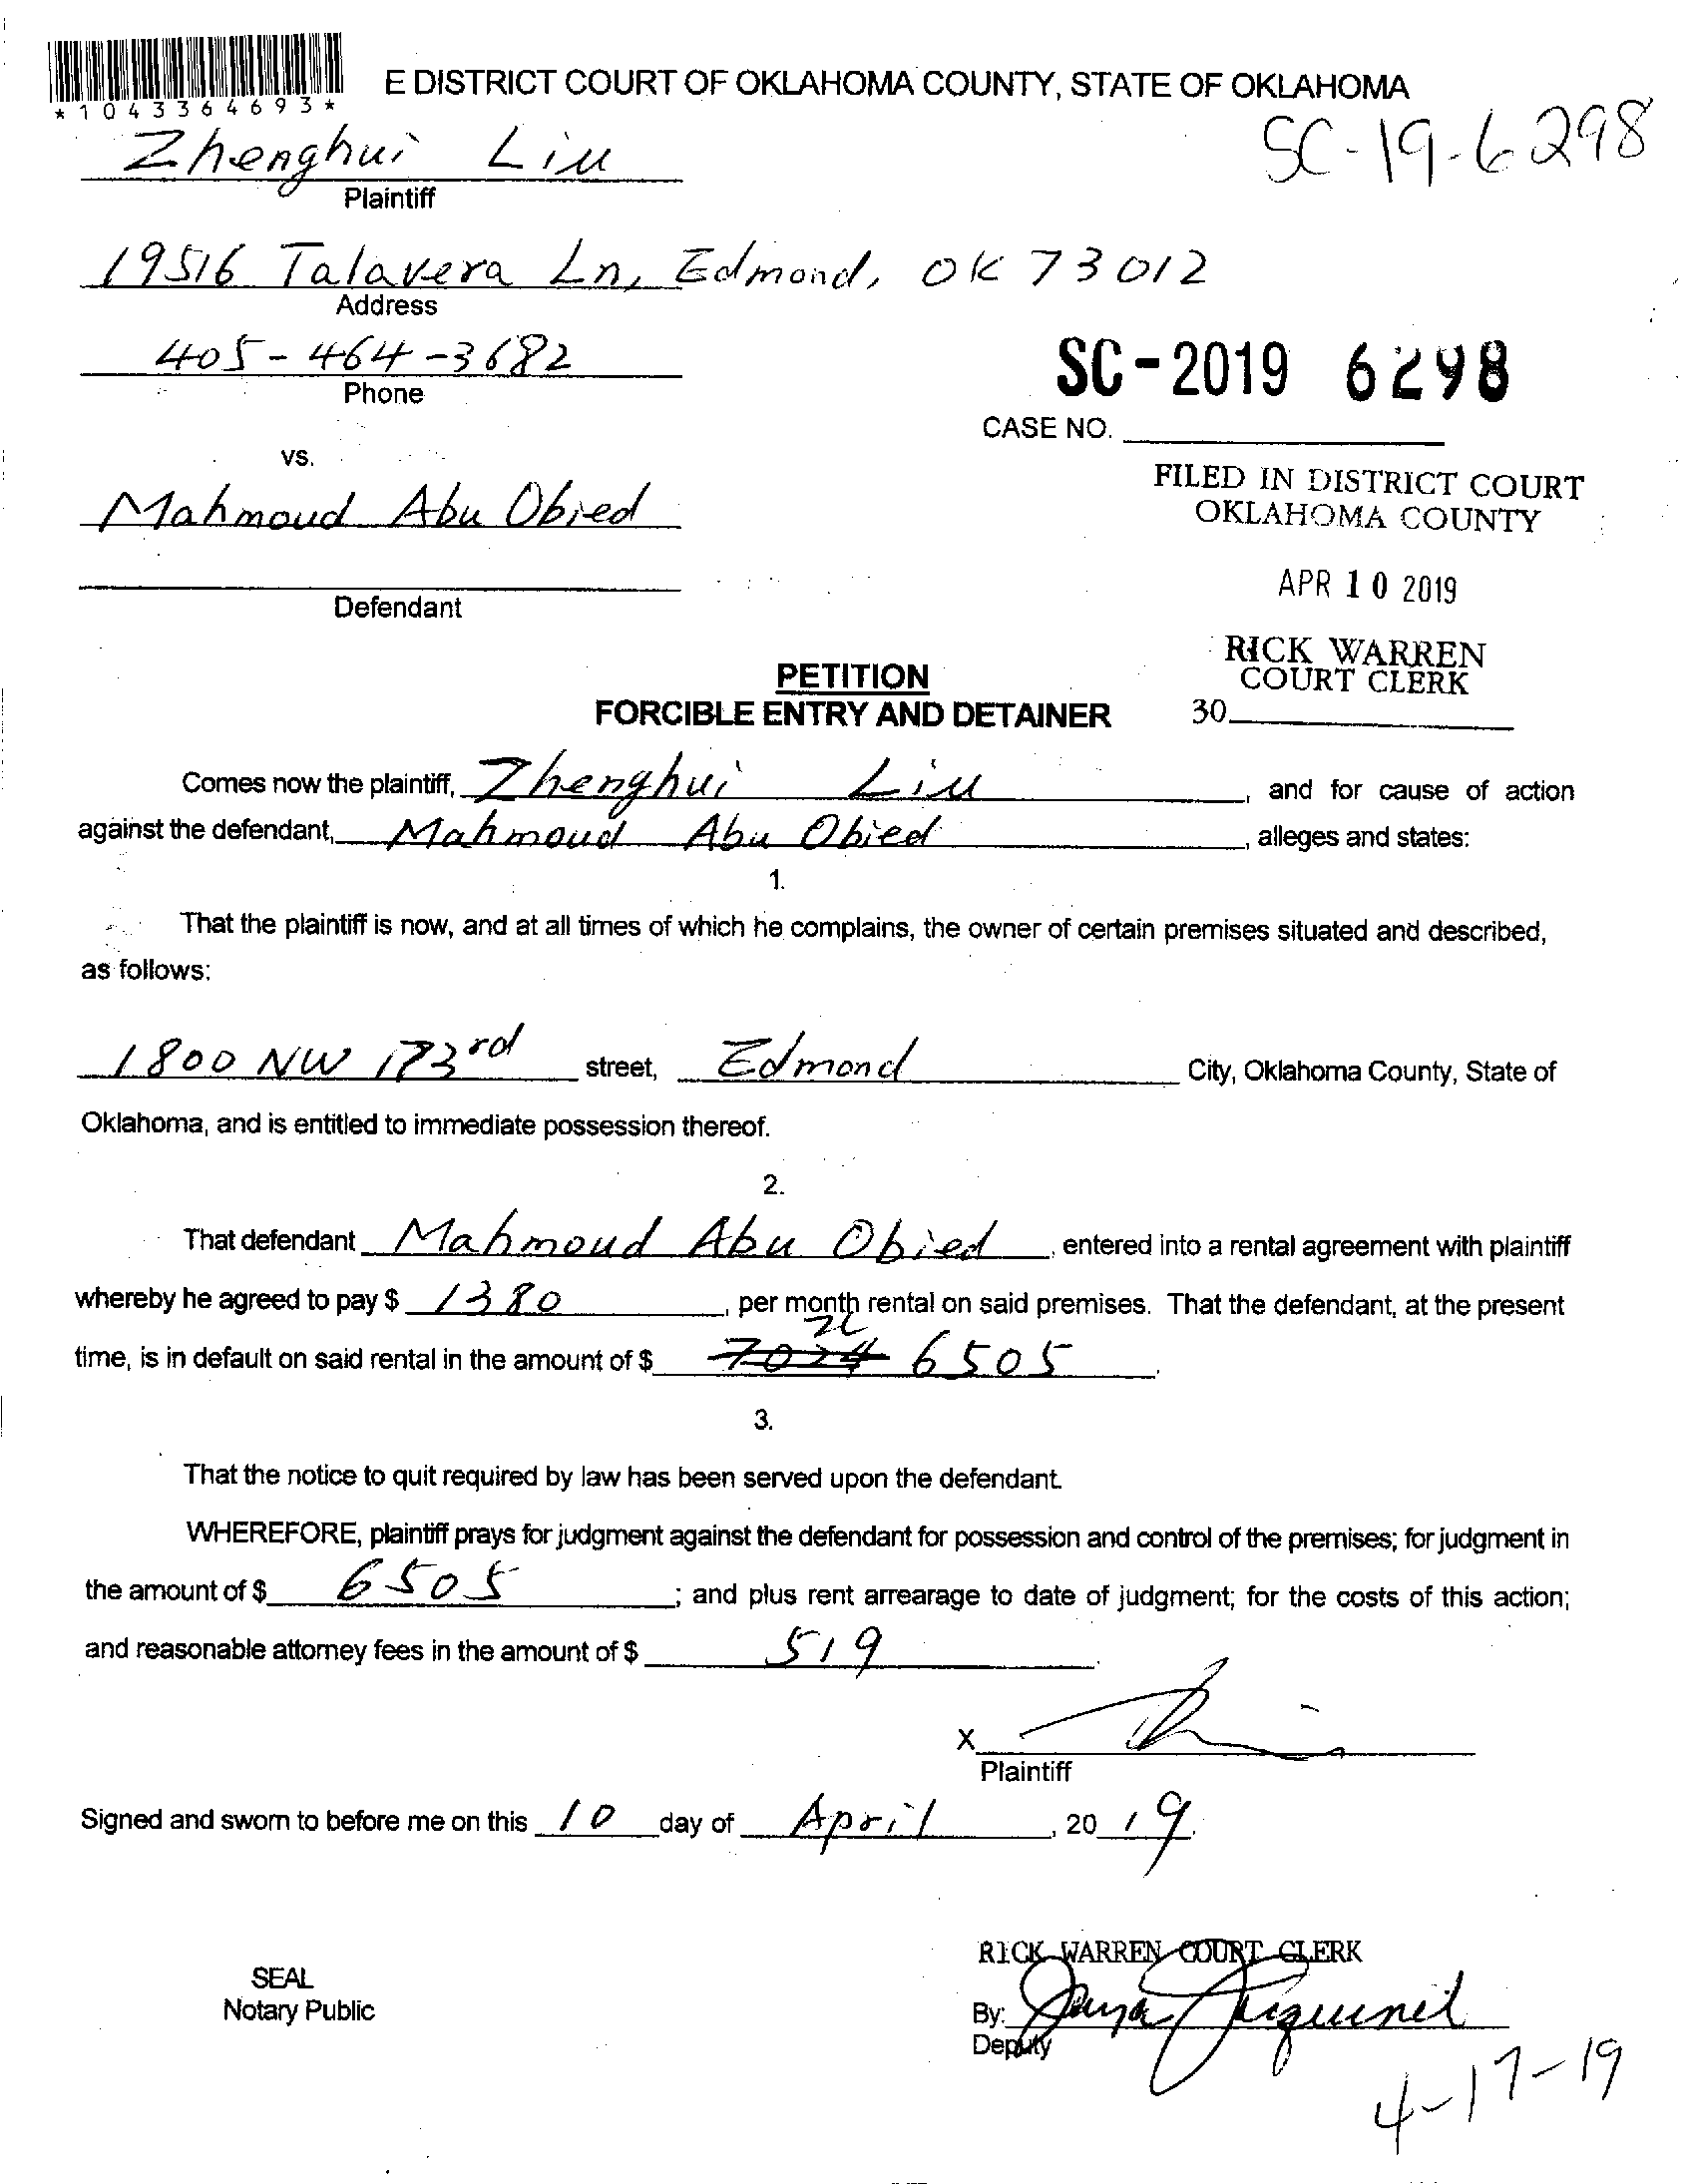 *1043364693*
E DISTRICT COURT OF OKLAHOMA COUNTY, STATE OF OKLAHOMA
SC-19-6298
Zhenghui Liu
Plaintiff
19516 Talavera Ln, Edmond, OK 73012
Address
405-464-3682
Phone
SC-2019 6298
CASE NO.
vs.
FILED IN DISTRICT COURT
OKLAHOMA COUNTY
Mahmoud Abu Obied
APR 10 2019
Defendant
RICK WARREN
COURT CLERK
30
PETITION
FORCIBLE ENTRY AND DETAINER
Comes now the plaintiff, Zhenghui Liu, and for cause of action
against the defendant, Mahmoud Abu Obied, alleges and states:
1.
That the plaintiff is now, and at all times of which he complains, the owner of certain premises situated and described,
as follows:
1800 NW 173rd street, Edmond City, Oklahoma County, State of
Oklahoma, and is entitled to immediate possession thereof.
2.
That defendant Mahmoud Abu Obied, entered into a rental agreement with plaintiff
whereby he agreed to pay $ 1380, per month rental on said premises. That the defendant, at the present
ZL
time, is in default on said rental in the amount of $ 7024 6505.
3.
That the notice to quit required by law has been served upon the defendant.
WHEREFORE, plaintiff prays for judgment against the defendant for possession and control of the premises; for judgment in
the amount of $ 6505; and plus rent arrearage to date of judgment; for the costs of this action;
and reasonable attorney fees in the amount of $ 519.
X
Plaintiff
Signed and sworn to before me on this 10 day of April, 20 19.
RICK WARREN COURT CLERK
SEAL
Notary Public
By:
Deputy
4-17-19